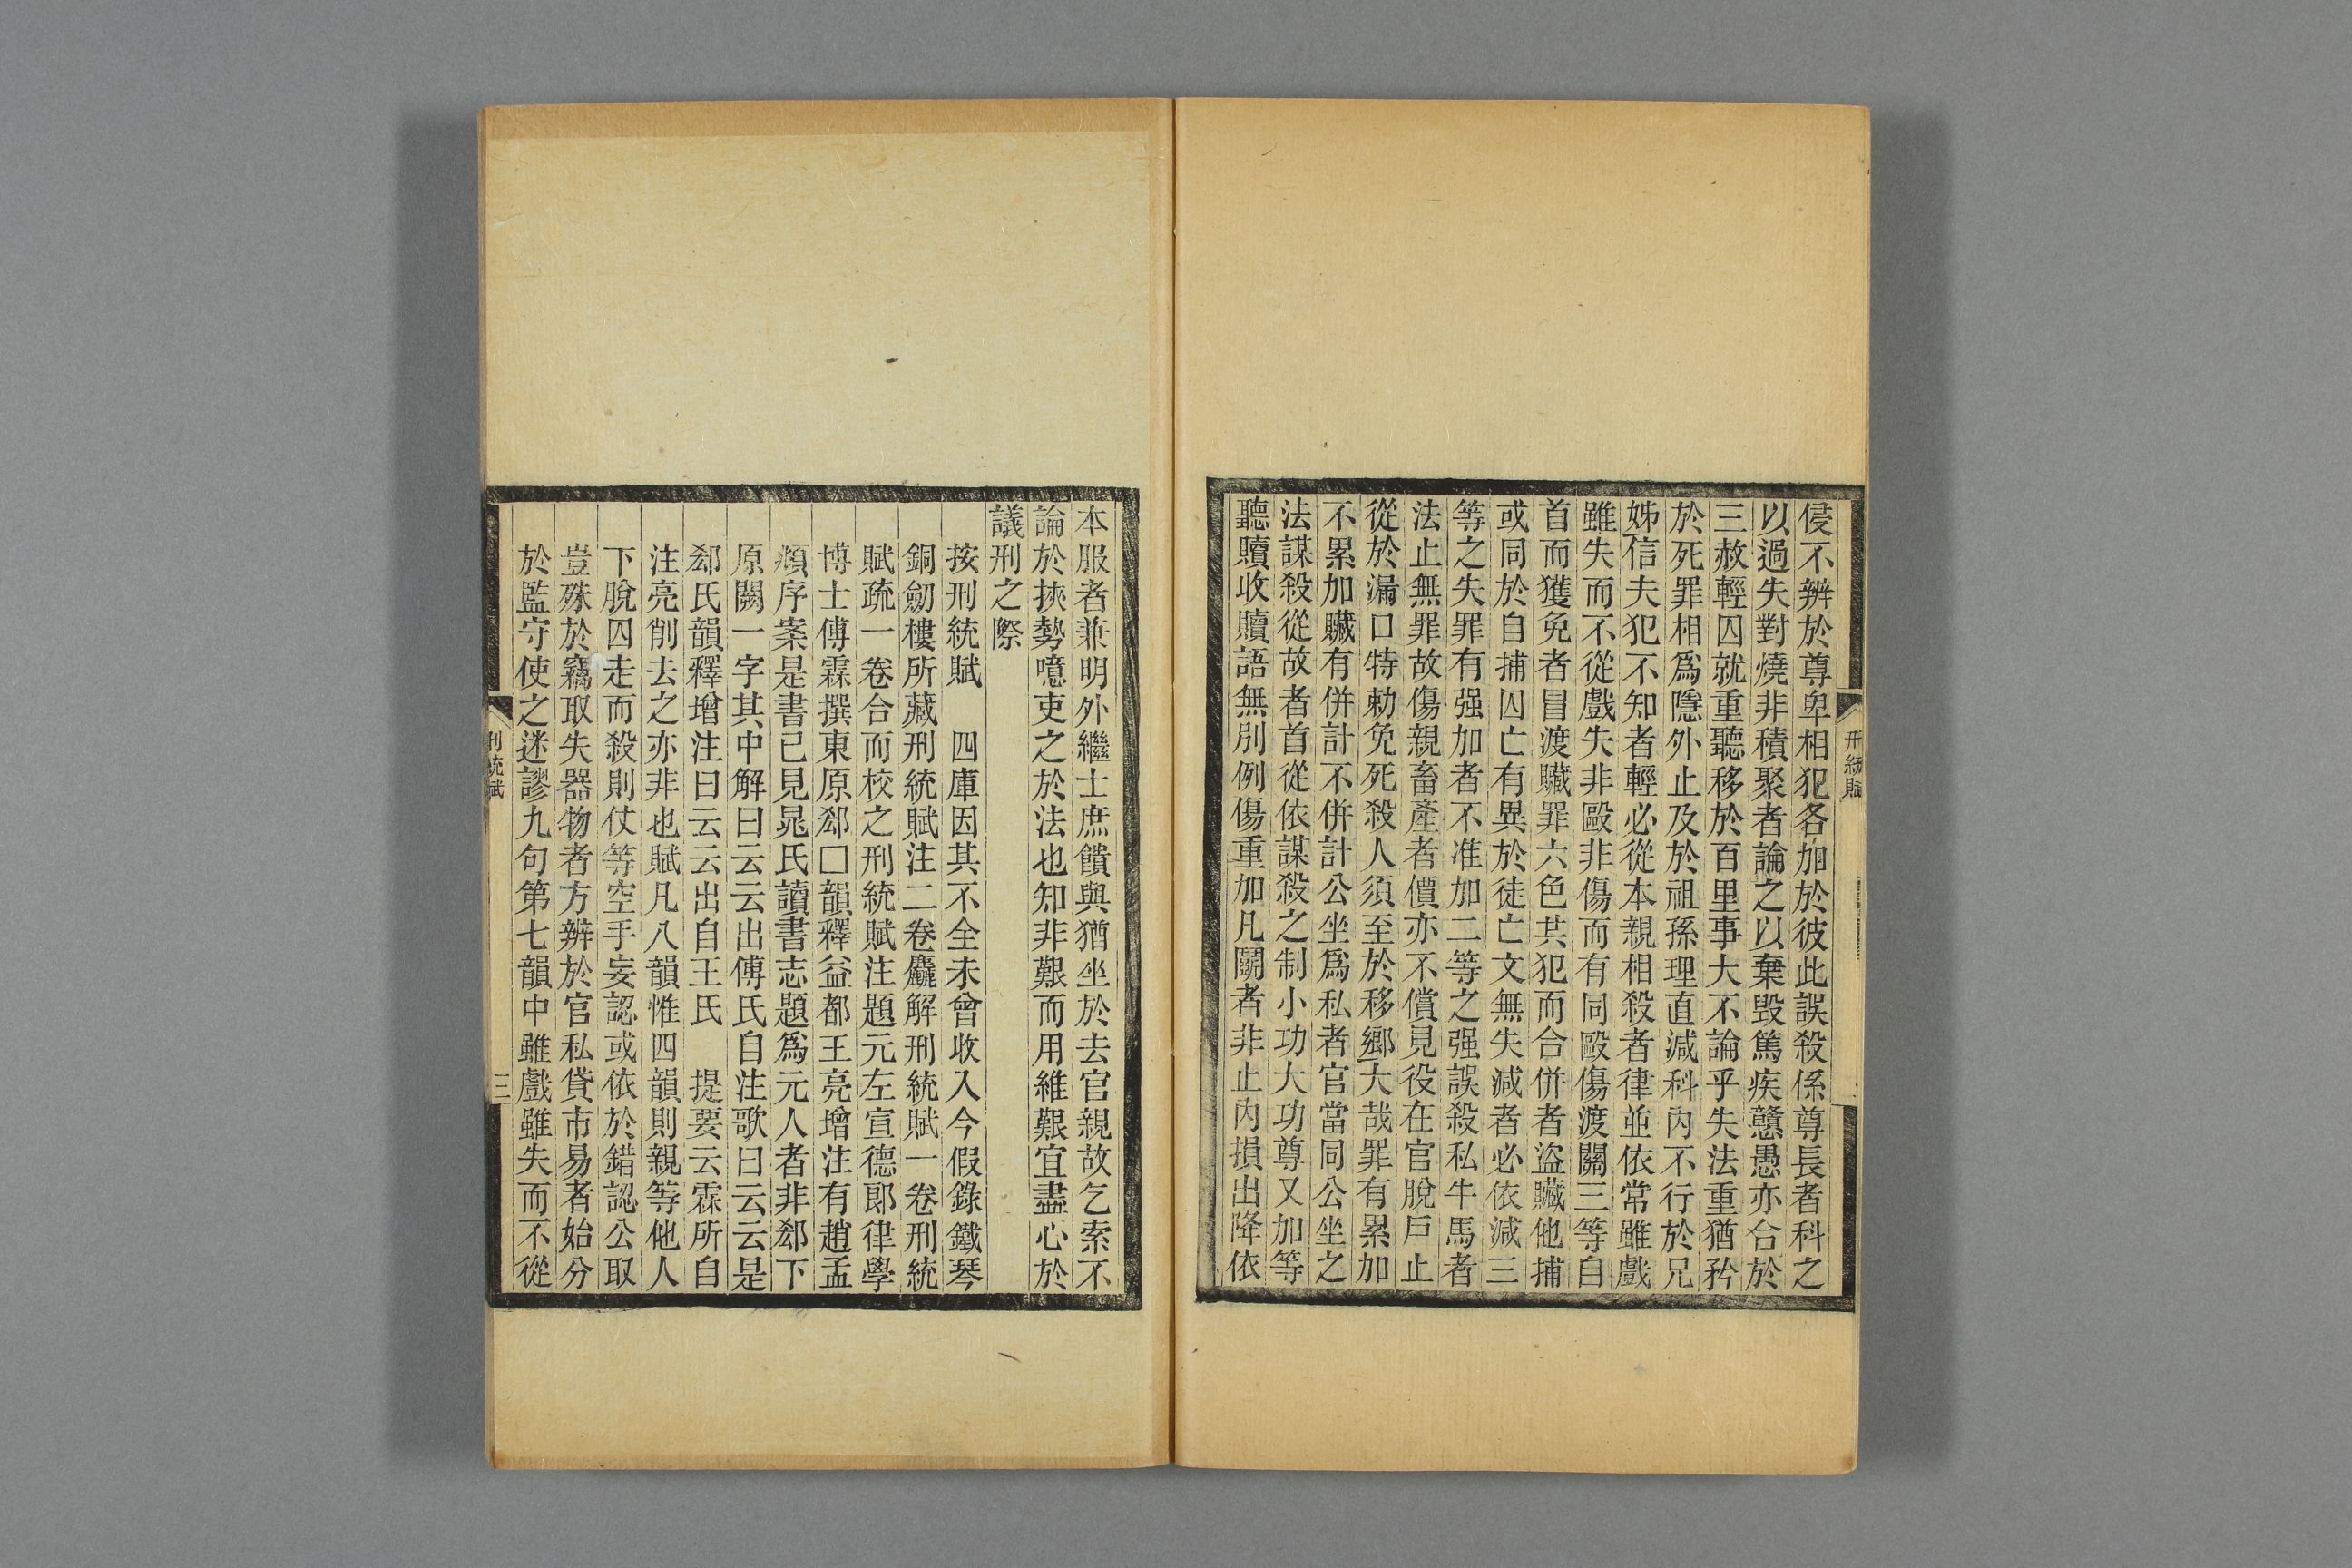 侵不辨於尊卑相犯各加於彼此誤殺係尊長者科之
以過失對燒非積聚者論之以棄毀篤疾戇愚亦合於
三赦輕囚就重聽移於百里事大不論乎失法重猶矜
於死罪相爲隱外止及於祖孫理直減科內不行於兄
姊信夫犯不知者輕必從本親相殺者律並依常雖戲
雖失而不從戲失非毆非傷而有同毆傷渡關三等自
首而獲免者冒渡贓罪六色其犯而合併者盜贓他捕
或同於自捕囚亡有異於徒亡文無失減者必依減三
等之失罪有强加者不准加二等之强誤殺私牛馬者
法止無罪故傷親畜產者價亦不償見役在官脫戶止
從於漏口特勅免死殺人須至於移鄉大哉罪有累加
不累加贓有併計不併計公坐爲私者官當同公坐之
法謀殺從故者首從依謀殺之制小功大功尊又加等
聽贖收贖語無別例傷重加凡鬭者非止內損出降依
刑統賦
本服者兼明外繼士庶饋與猶坐於去官親故乞索不
論於挾勢噫吏之於法也知非艱而用維艱宜盡心於
議刑之際
按刑統賦　四庫因其不全未曾收入今假錄鐵琴
銅劒樓所藏刑統賦注二卷麤解刑統賦一卷刑統
賦疏一卷合而校之刑統賦注題元左宣德郎律學
博士傅霖撰東原郄□韻釋益都王亮增注有趙孟
頫序案是書已見晁氏讀書志題爲元人者非郄下
原闕一字其中解曰云云出傅氏自注歌曰云云是
郄氏韻釋增注曰云云出自王氏　提要云霖所自
注亮削去之亦非也賦凡八韻惟四韻則親等他人
下脫囚走而殺則仗等空手妄認或依於錯認公取
豈殊於竊取失器物者方辨於官私貸市易者始分
於監守使之迷謬九句第七韻中雖戲雖失而不從
刑統賦
三